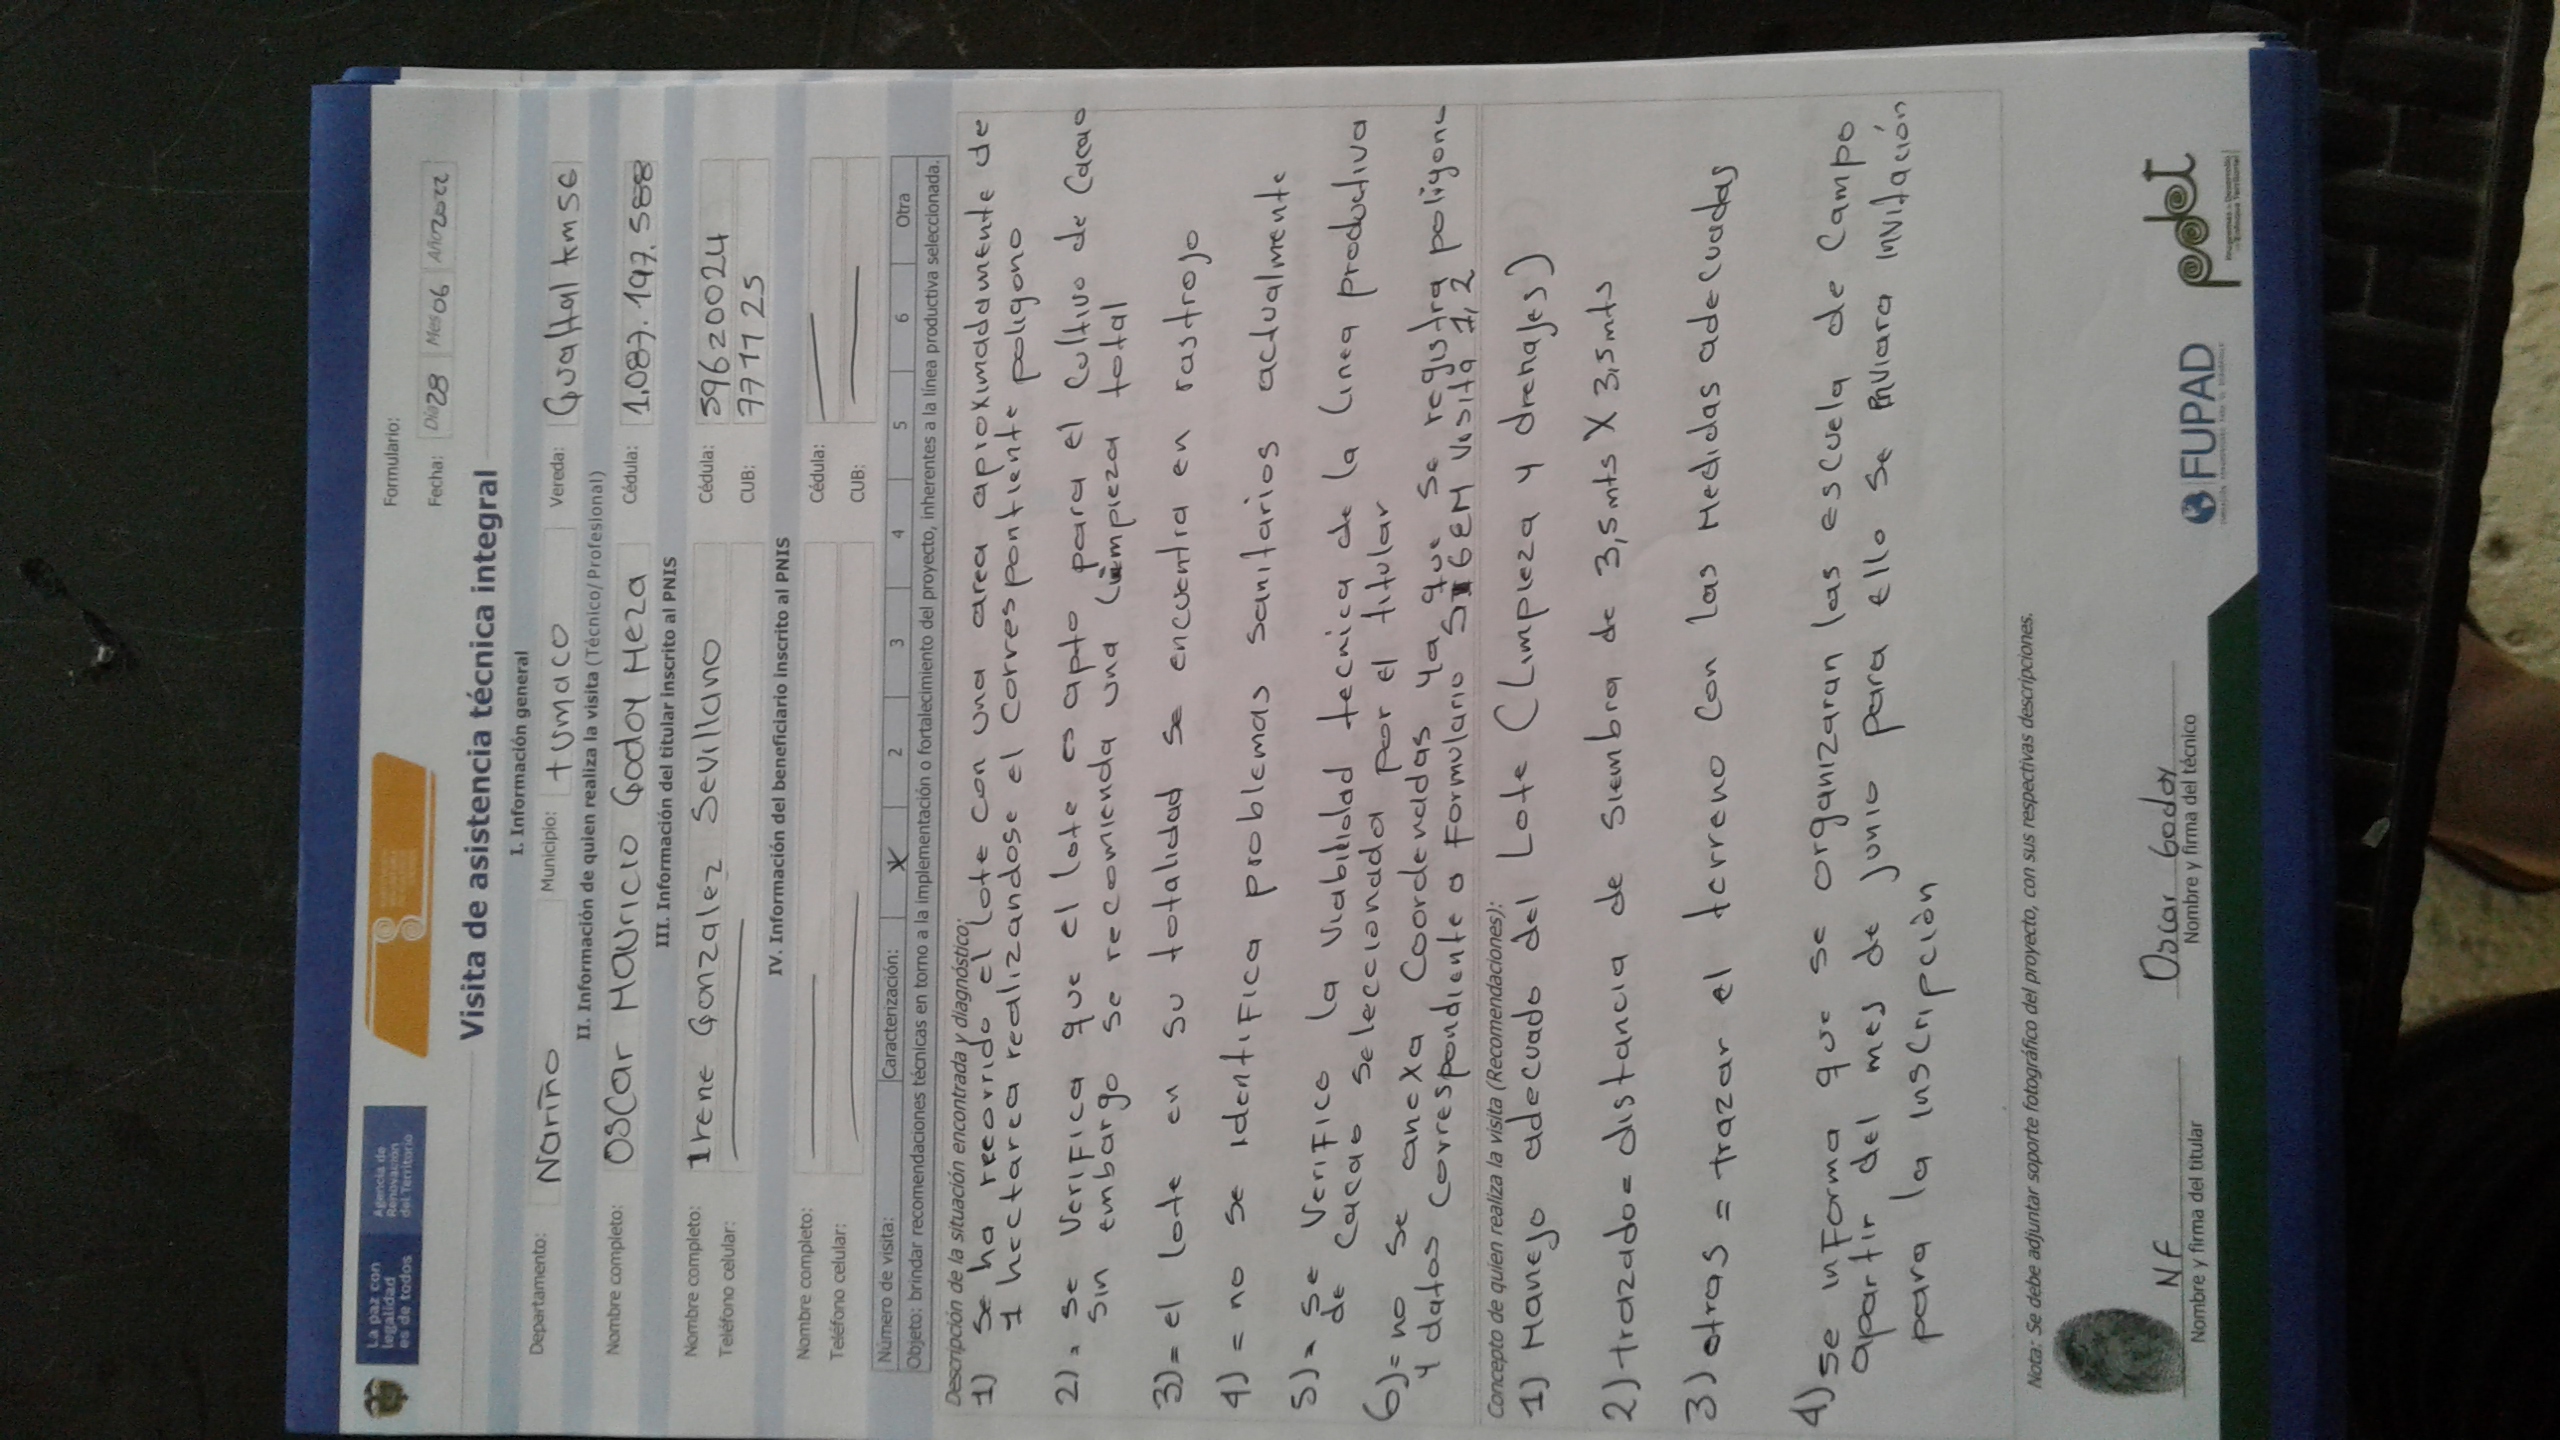 La paz con
legalidad
es de todos
Agencia de
Renovación
del Territorio
Formulario:
Fecha: Día 28 Mes 06 Año 2022
Visita de asistencia técnica integral
I. Información general
Departamento: Nariño Municipio: tumaco Vereda: Gualtal km 56
II. Información de quien realiza la visita (Técnico/Profesional)
Nombre completo: Oscar Mauricio Godoy Meza Cédula: 1.087.197.588
III. Información del titular inscrito al PNIS
Nombre completo: Irene Gonzalez Sevillano Cédula: 59620024
Teléfono celular: CUB: 777125
IV. Información del beneficiario inscrito al PNIS
Nombre completo: Cédula:
Teléfono celular: CUB:
Número de visita: Caracterización: X 2 3 4 5 6 Otra
Objeto: brindar recomendaciones técnicas en torno a la implementación o fortalecimiento del proyecto, inherentes a la línea productiva seleccionada.
Descripción de la situación encontrada y diagnóstico:
1) se ha recorrido el lote con una area aproximadamente de
1 hectarea realizandose el correspontiente poligono
2)= se verifica que el lote es apto para el cultivo de cacao
sin embargo se recomienda una limpieza total
3)= el lote en su totalidad se encuentra en rastrojo
4) = no se identifica problemas sanitarios actualmente
5)= se verifico la viabilidad tecnica de la linea productiva
de cacao seleccionada por el titular
6)= no se anexa coordenadas ya que se registra poligono
y datos correspondiente a formulario SIGEM visita 1,2
Concepto de quien realiza la visita (Recomendaciones):
1) Manejo adecuado del Lote (Limpieza y drenajes)
2) trazado= distancia de siembra de 3,5mts X 3,5mts
3) otras = trazar el terreno con las medidas adecuadas
4) se informa que se organizaran las escuela de campo
apartir del mes de junio para ello se enviara invitación
para la inscripción
Nota: Se debe adjuntar soporte fotográfico del proyecto, con sus respectivas descripciones.
NF
Nombre y firma del titular
Oscar Godoy
Nombre y firma del técnico
FUPAD
pdet
Programas de Desarrollo
con Enfoque Territorial